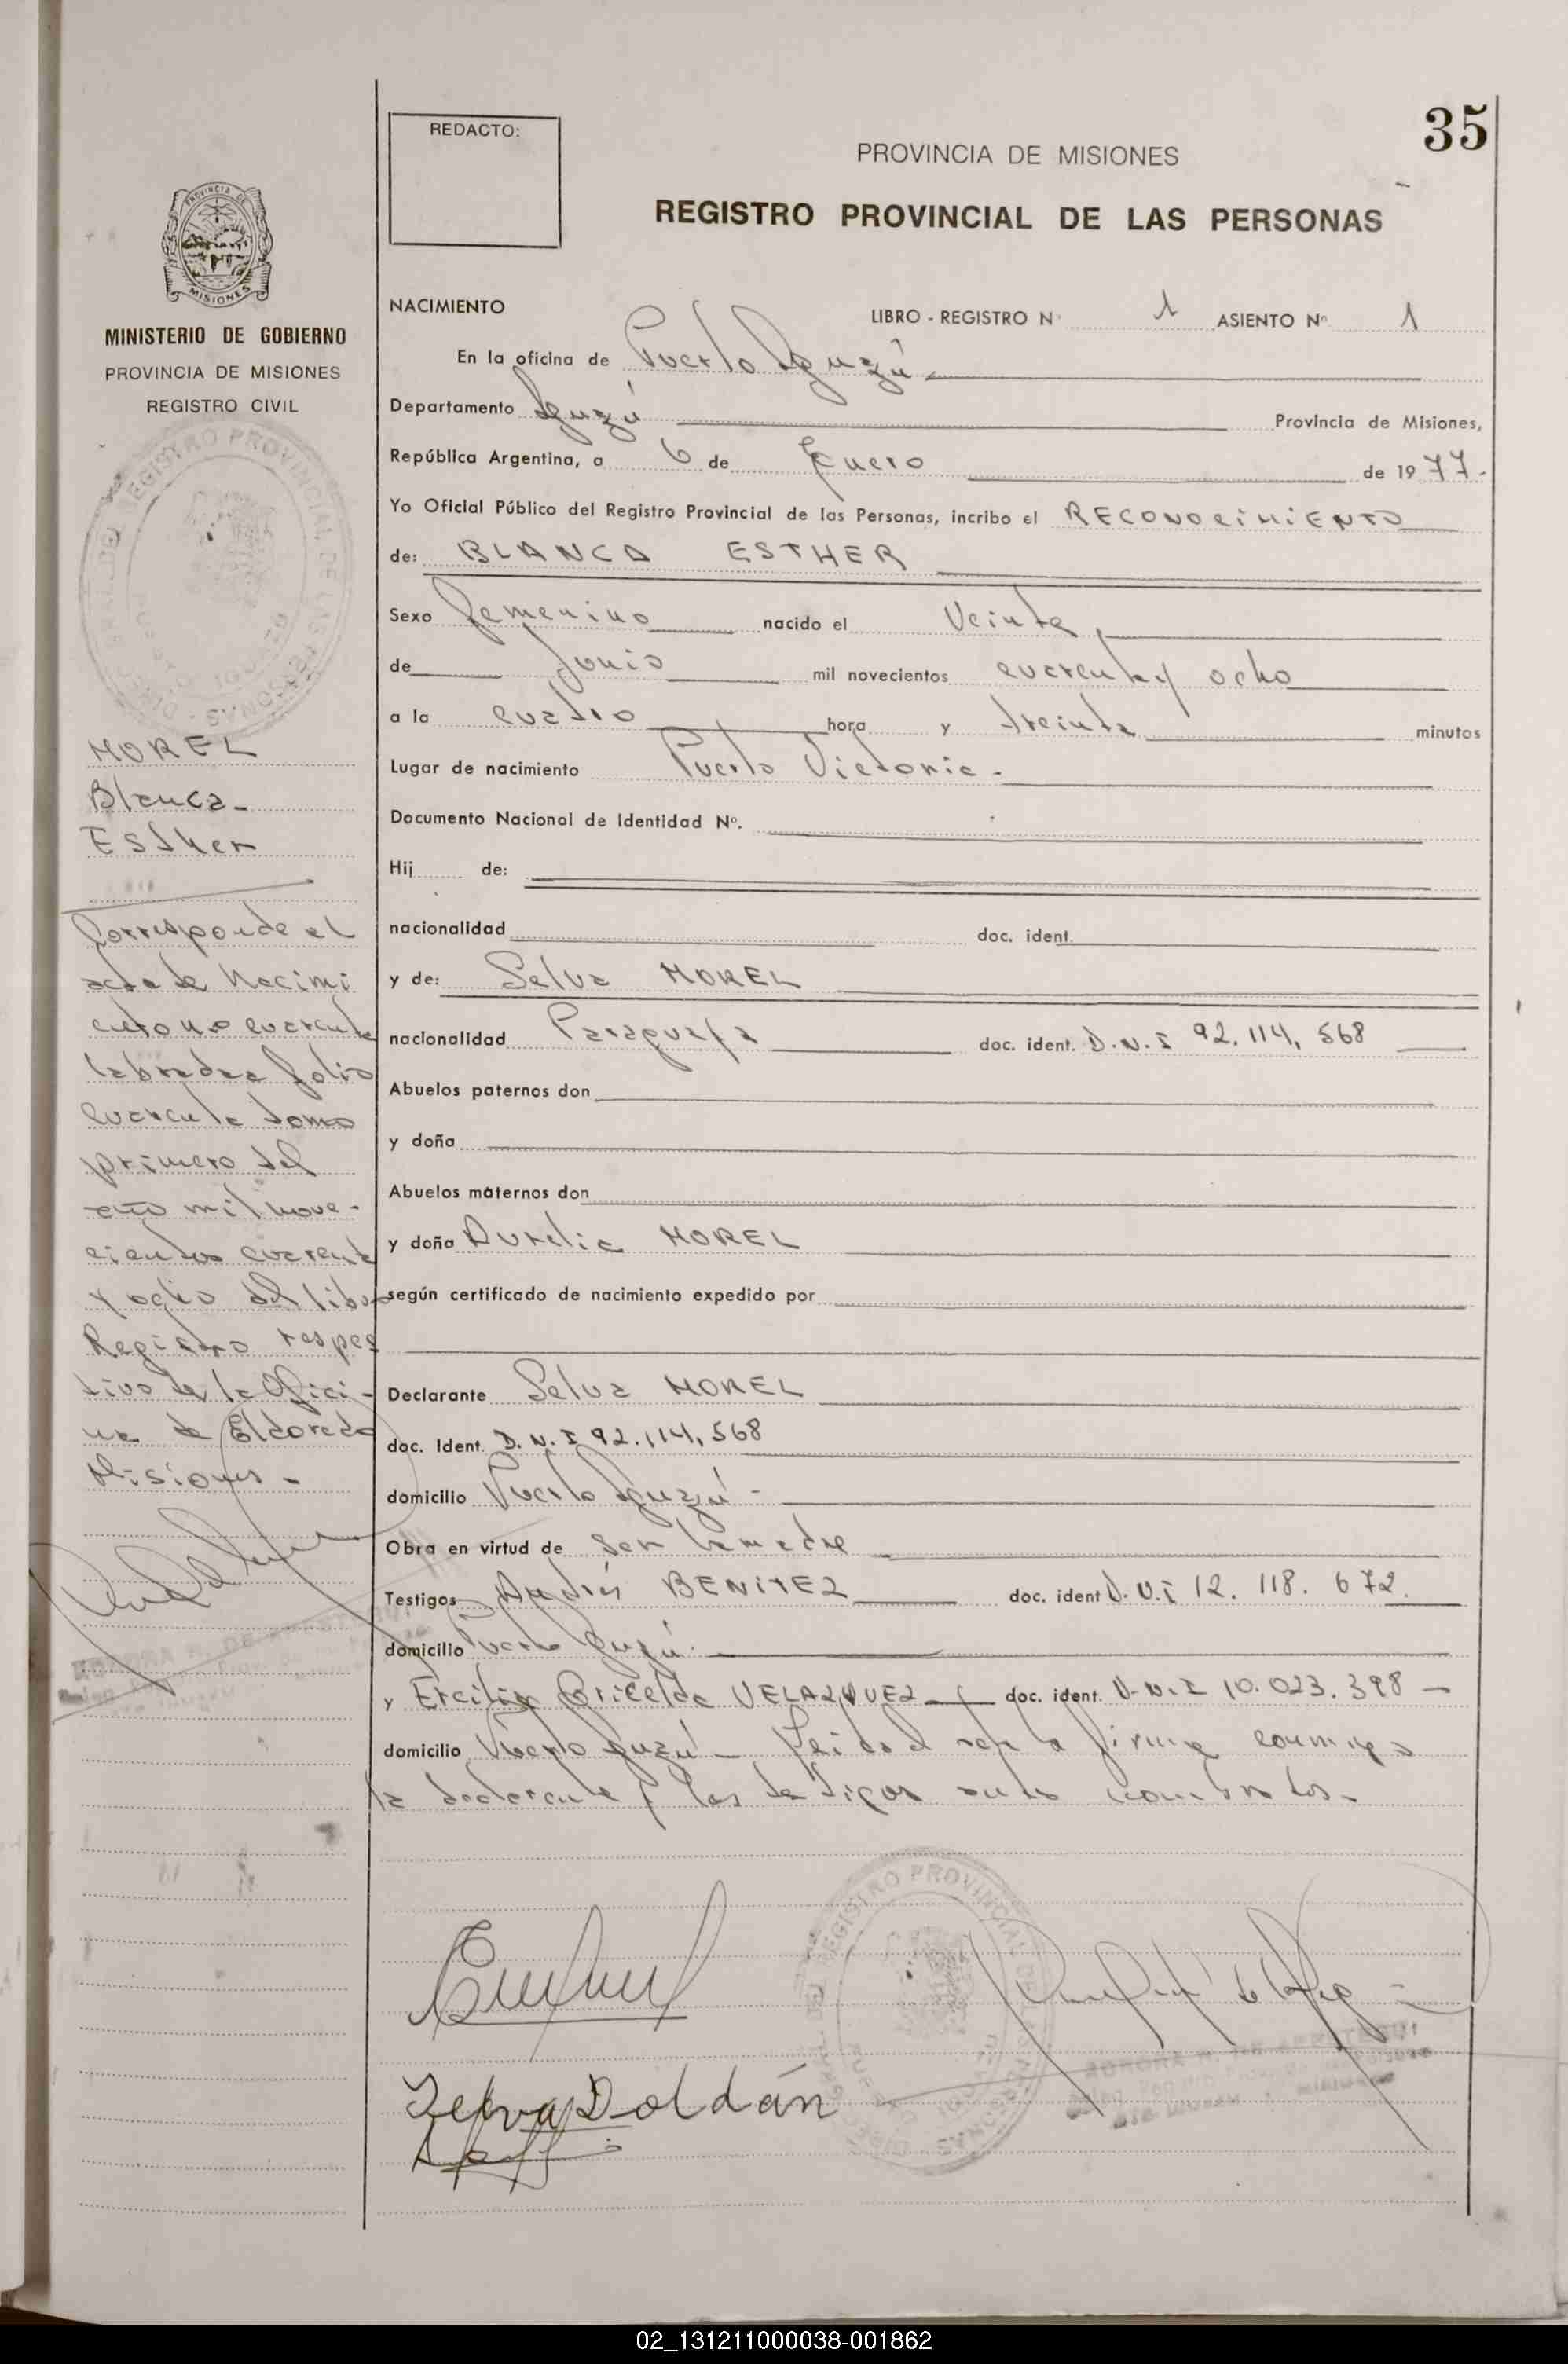 35
REDACTO:
PROVINCIA DE MISIONES
REGISTRO PROVINCIAL DE LAS PERSONAS
MINISTERIO DE GOBIERNO
PROVINCIA DE MISIONES
REGISTRO CIVIL
MOREL
Blanca-
Esther
Corresponde el
acta de Nacimi
ento no cuarenta
labrada a folio
cuarenta tomo
primero del
año mil nove-
cientos cuarenta
y ocho del libro
Registro respec
tivo de la Ofici-
na de Eldorado
Misiones-
NACIMIENTO LIBRO - REGISTRO Nº 1 ASIENTO Nº 1
En la oficina de Puerto Iguazú
Departamento Iguazú Provincia de Misiones,
República Argentina, a 6 de Enero de 1977-
Yo Oficial Público del Registro Provincial de las Personas, incribo el RECONOCIMIENTO
de: BLANCA ESTHER
Sexo femenino nacido el Veinte
de Junio mil novecientos cuarenta y ocho
a la cuatro hora y treinta minutos
Lugar de nacimiento Puerto Victoria-
Documento Nacional de Identidad Nº.
Hij de:
nacionalidad doc. ident.
y de: Selva MOREL
nacionalidad Paraguaya doc. ident. D.N.I 92.114,568
Abuelos paternos don
y doña
Abuelos maternos don
y doña Aurelia MOREL
según certificado de nacimiento expedido por
Declarante Selva MOREL
doc. Ident. D.N.I 92.114,568
domicilio Puerto Iguazú-
Obra en virtud de ser la madre
Testigos Andrés BENITEZ doc. ident D.N.I 12.118.672.
domicilio Puerto Iguazú.
y Ercilia Gricelda VELAZQUEZ doc. ident. D.N.I 10.023.398-
domicilio Puerto Iguazú- Leída el acta la firma conmigo
la declarante y los testigos
Selva Doldán
DEL REGISTRO PROVINCIAL DE LAS PERSONAS
02_131211000038-001862